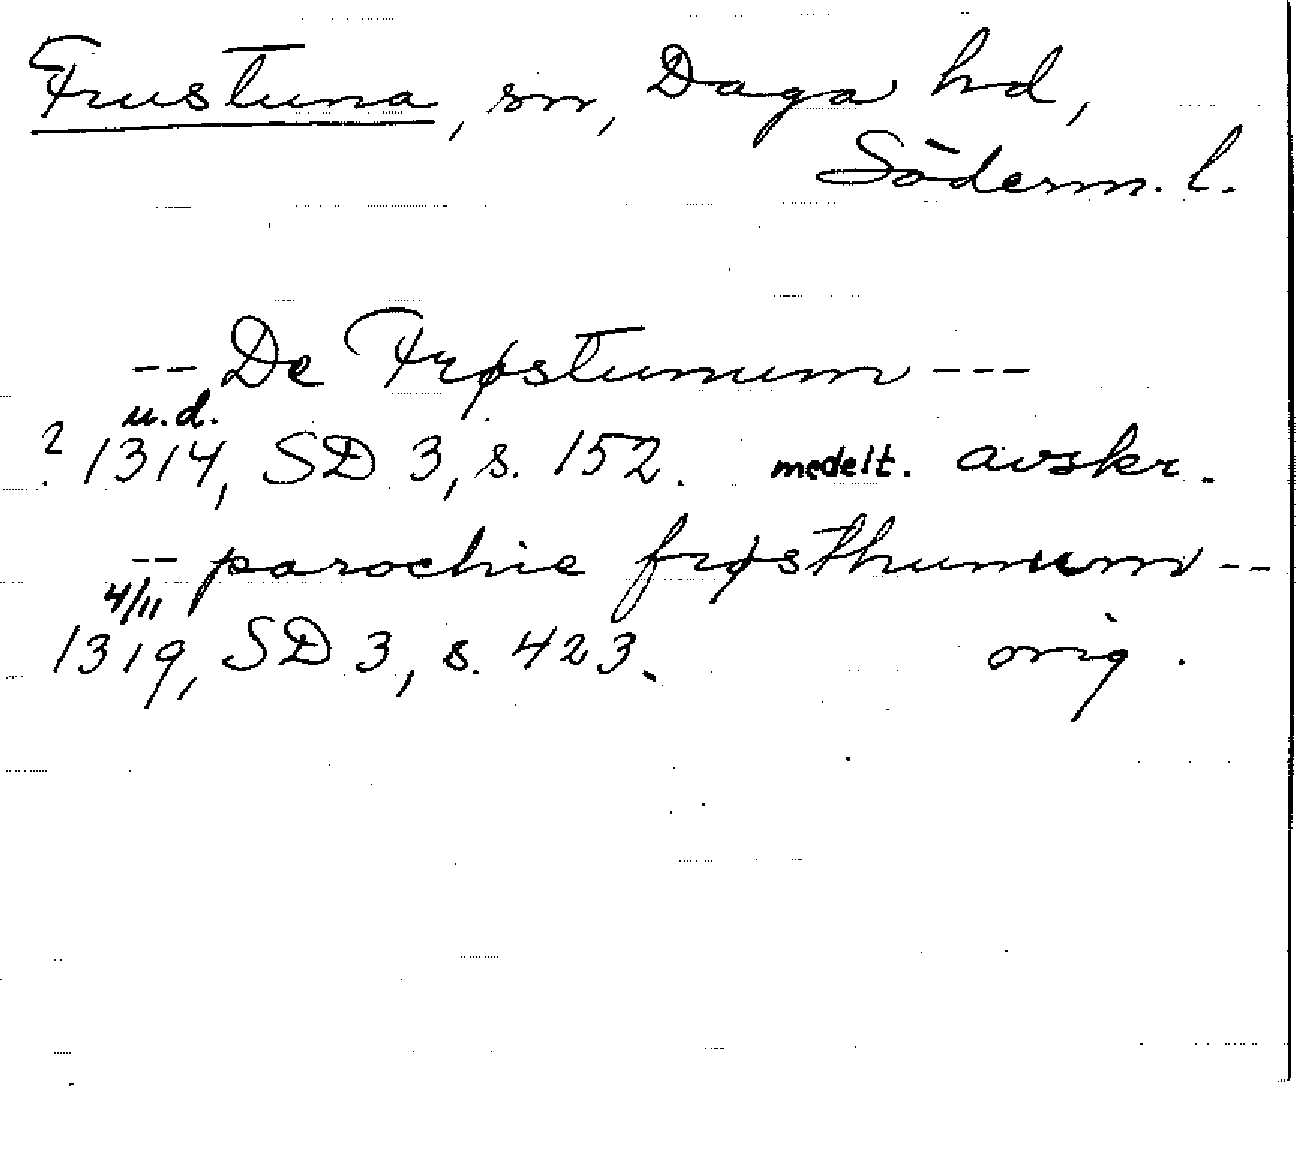 Frustuna, sn, Daga hd,
Söderm. l.
-- De Frøstumum ---
u.d.
? 1314, SD 3, s. 152. medelt. avskr.
-- parochie frøsthumum --
4/11
1319, SD 3, s. 423. orig.